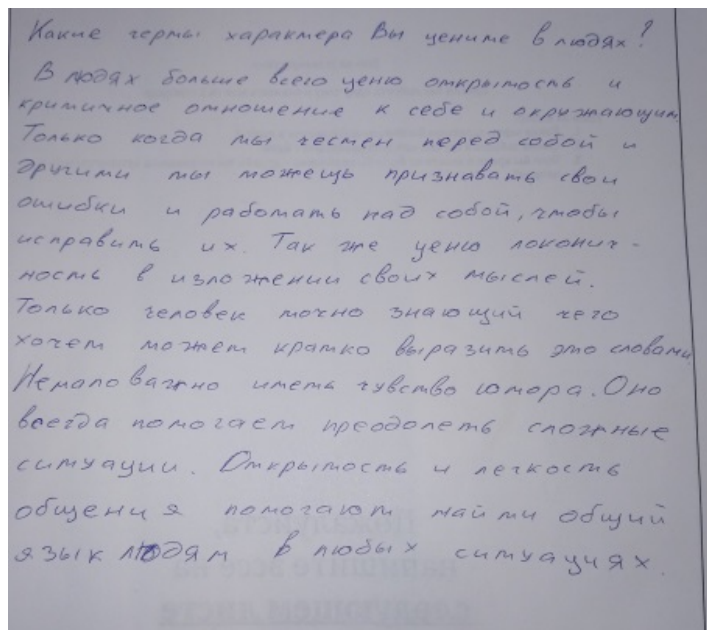 Какие черты характера Вы цените в людях?
В людях больше всего ценю открытость и
критичное отношение к себе и окружающим
Только когда ты честен перед собой и
другими ты можещь признавать свои
ошибки и работать над собой, чтобы
исправить их. Так же ценю локонич-
ность в изложении своих мыслей.
Только человек точно знающий чего
хочет может кратко выразить это словами
Немаловажно иметь чувство юмора. Оно
всегда помогает преодолеть сложные
ситуации. Открытость и легкость
общения помогают найти общий
язык людям в любых ситуациях.